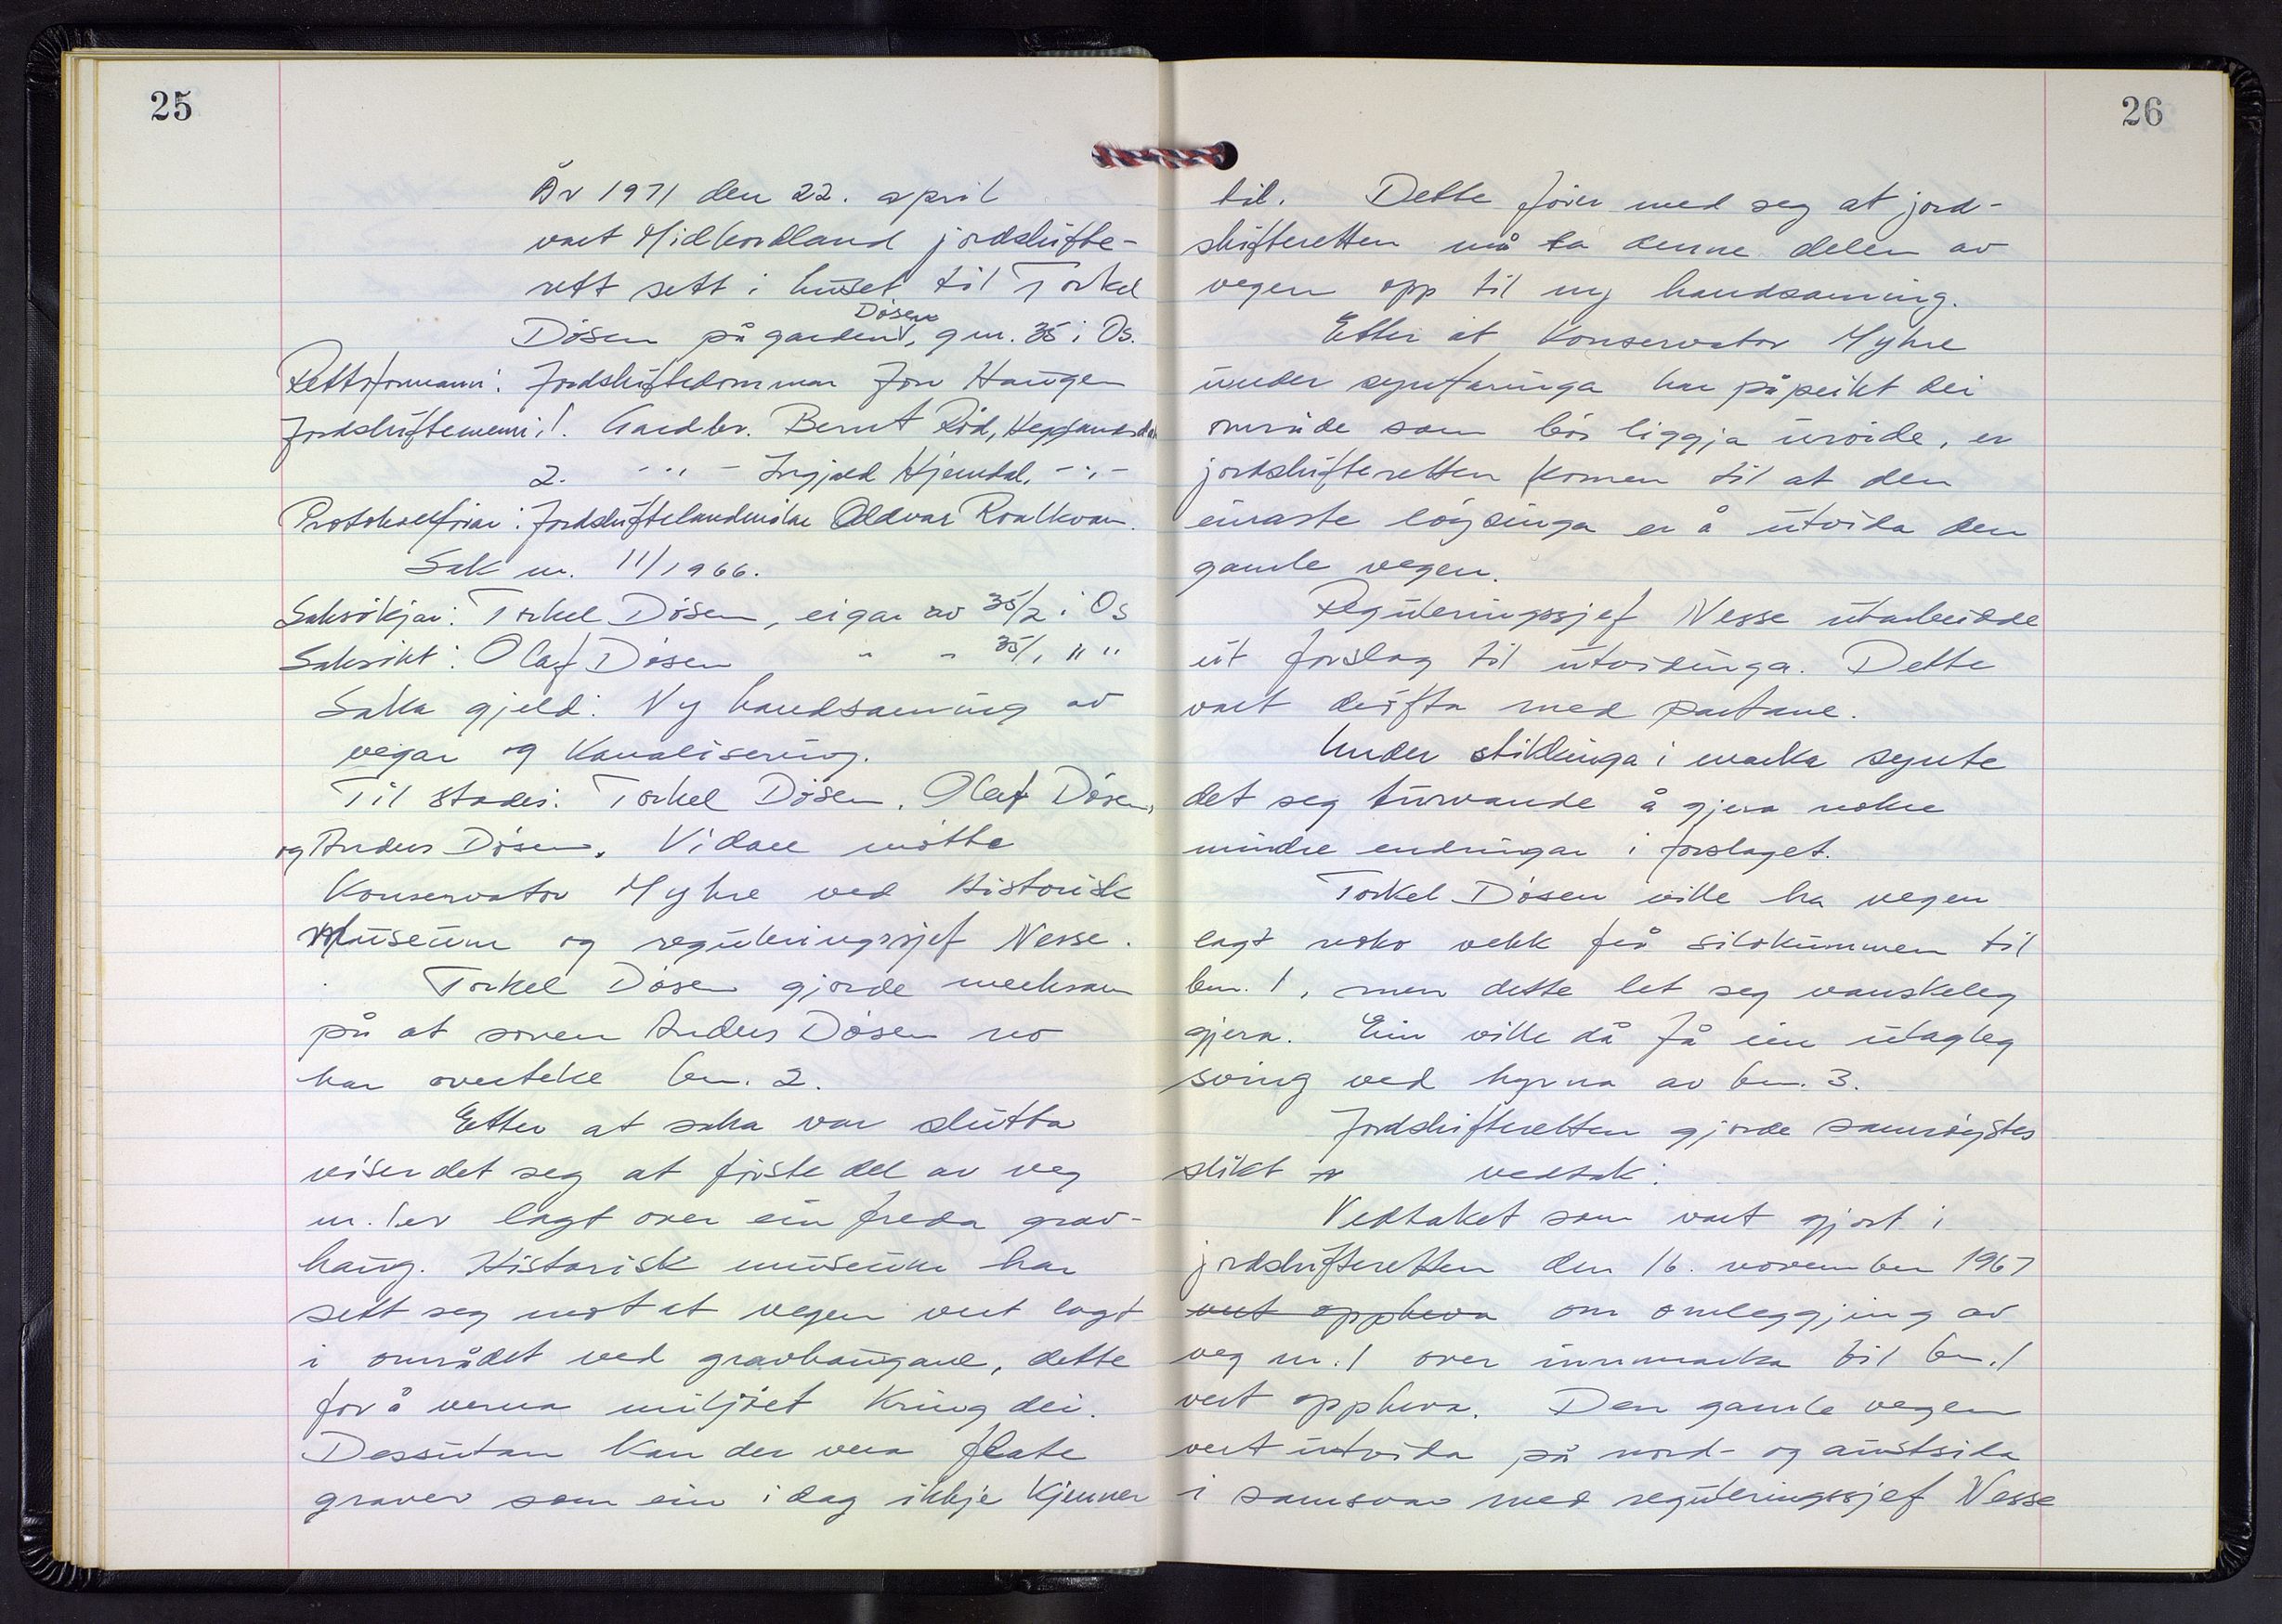 25
År 1971 den 22. april
vart Midhordland jordskifte-
rett sett i huset til Torkel
Døsen
Døsen på garden, gnr. 35 i Os.
Rettsformann: Jordskiftedommar Jon Haugen
Jordskiftemenn: 1. Gardbr. Bernt Röd, Hegglandsdal
2. - " - Ingjald Hjemdal, - " -
Protokollförar: Jordskiftelandmålar Oddvar Roalkvam.
Sak nr. 11/1966.
Saksökjar: Torkel Døsen, eigar av 35/2 i Os
Saksökt: Olaf Døsen " " 35/1 " "
Saka gjeld: Ny handsaming av
vegar og kanalisering.
Til stades: Torkel Døsen, Olaf Døsen,
og Anders Døsen. Vidare møtte
Konservator Myhre ved Historisk
Museum og reguleringssjef Nesse.
Torkel Døsen gjorde merksam
på at sonen Anders Døsen no
har overteke bnr. 2.
Etter at saka var slutta
viser det seg at første del av veg
nr. 1 er lagt over ein freda grav-
haug. Historisk museum har
sett seg mot at vegen vert lagt
i området ved gravhaugane, dette
for å verna miljøet kring dei.
Dessutan kan der vera flate
graver som ein i dag ikkje kjenner
26
til. Dette fører med seg at jord-
skifteretten må ta denne delen av
vegen opp til ny handsaming.
Etter at Konservator Myhre
under synfaringa har påpeikt dei
område som bør liggja urørde, er
jordskifteretten komen til at den
einaste løysinga er å utvida den
gamle vegen.
Reguleringssjef Nesse utarbeidde
eit forslag til utvidinga. Dette
vart drøfta med partane.
Under stikkinga i marka synte
det seg turvande å gjera nokre
mindre endringar i forslaget.
Torkel Døsen ville ha vegen
lagt noko vekk frå silokummen til
bnr. 1, men dette let seg vanskeleg
gjera. Ein ville då få ein utagleg
sving ved hyrna av bnr. 3.
Jordskifteretten gjorde samrøystes
slikt vedtak:
Vedtaket som vart gjort i
jordskifteretten den 16. november 1967
vert oppheva om omleggjing av
veg nr. 1 over innmarka til bnr. 1
vert oppheva. Den gamle vegen
vert utvida på nord- og austsida
i samsvar med reguleringssjef Nesse